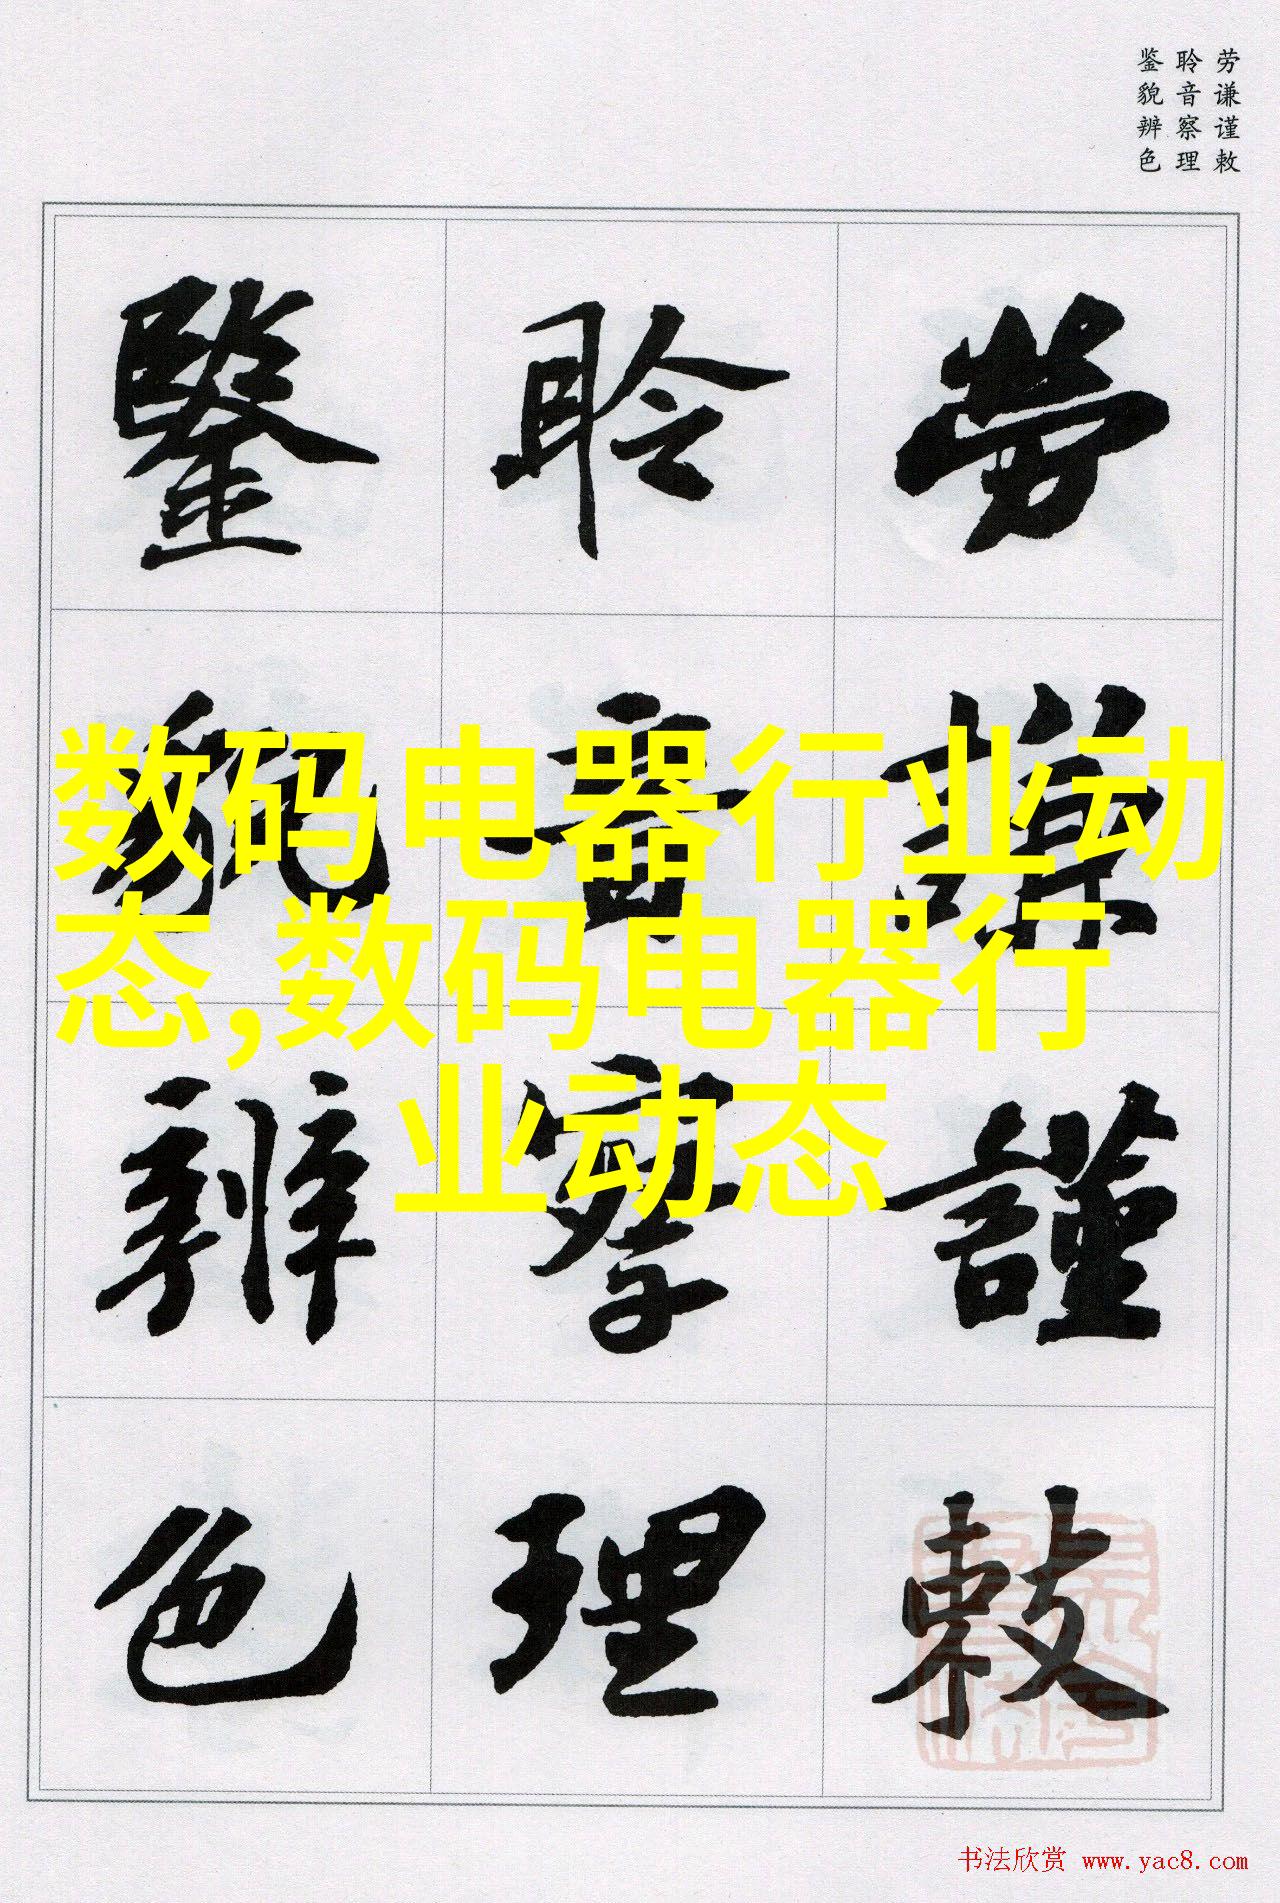 劳谦谨敕
聆音察理
鉴貌辨色
劳謙謹敕
聆音察理
鑒貌辨色
数码电器行业动
态,数码电器行
业动态
书法欣赏 www.yac8.com